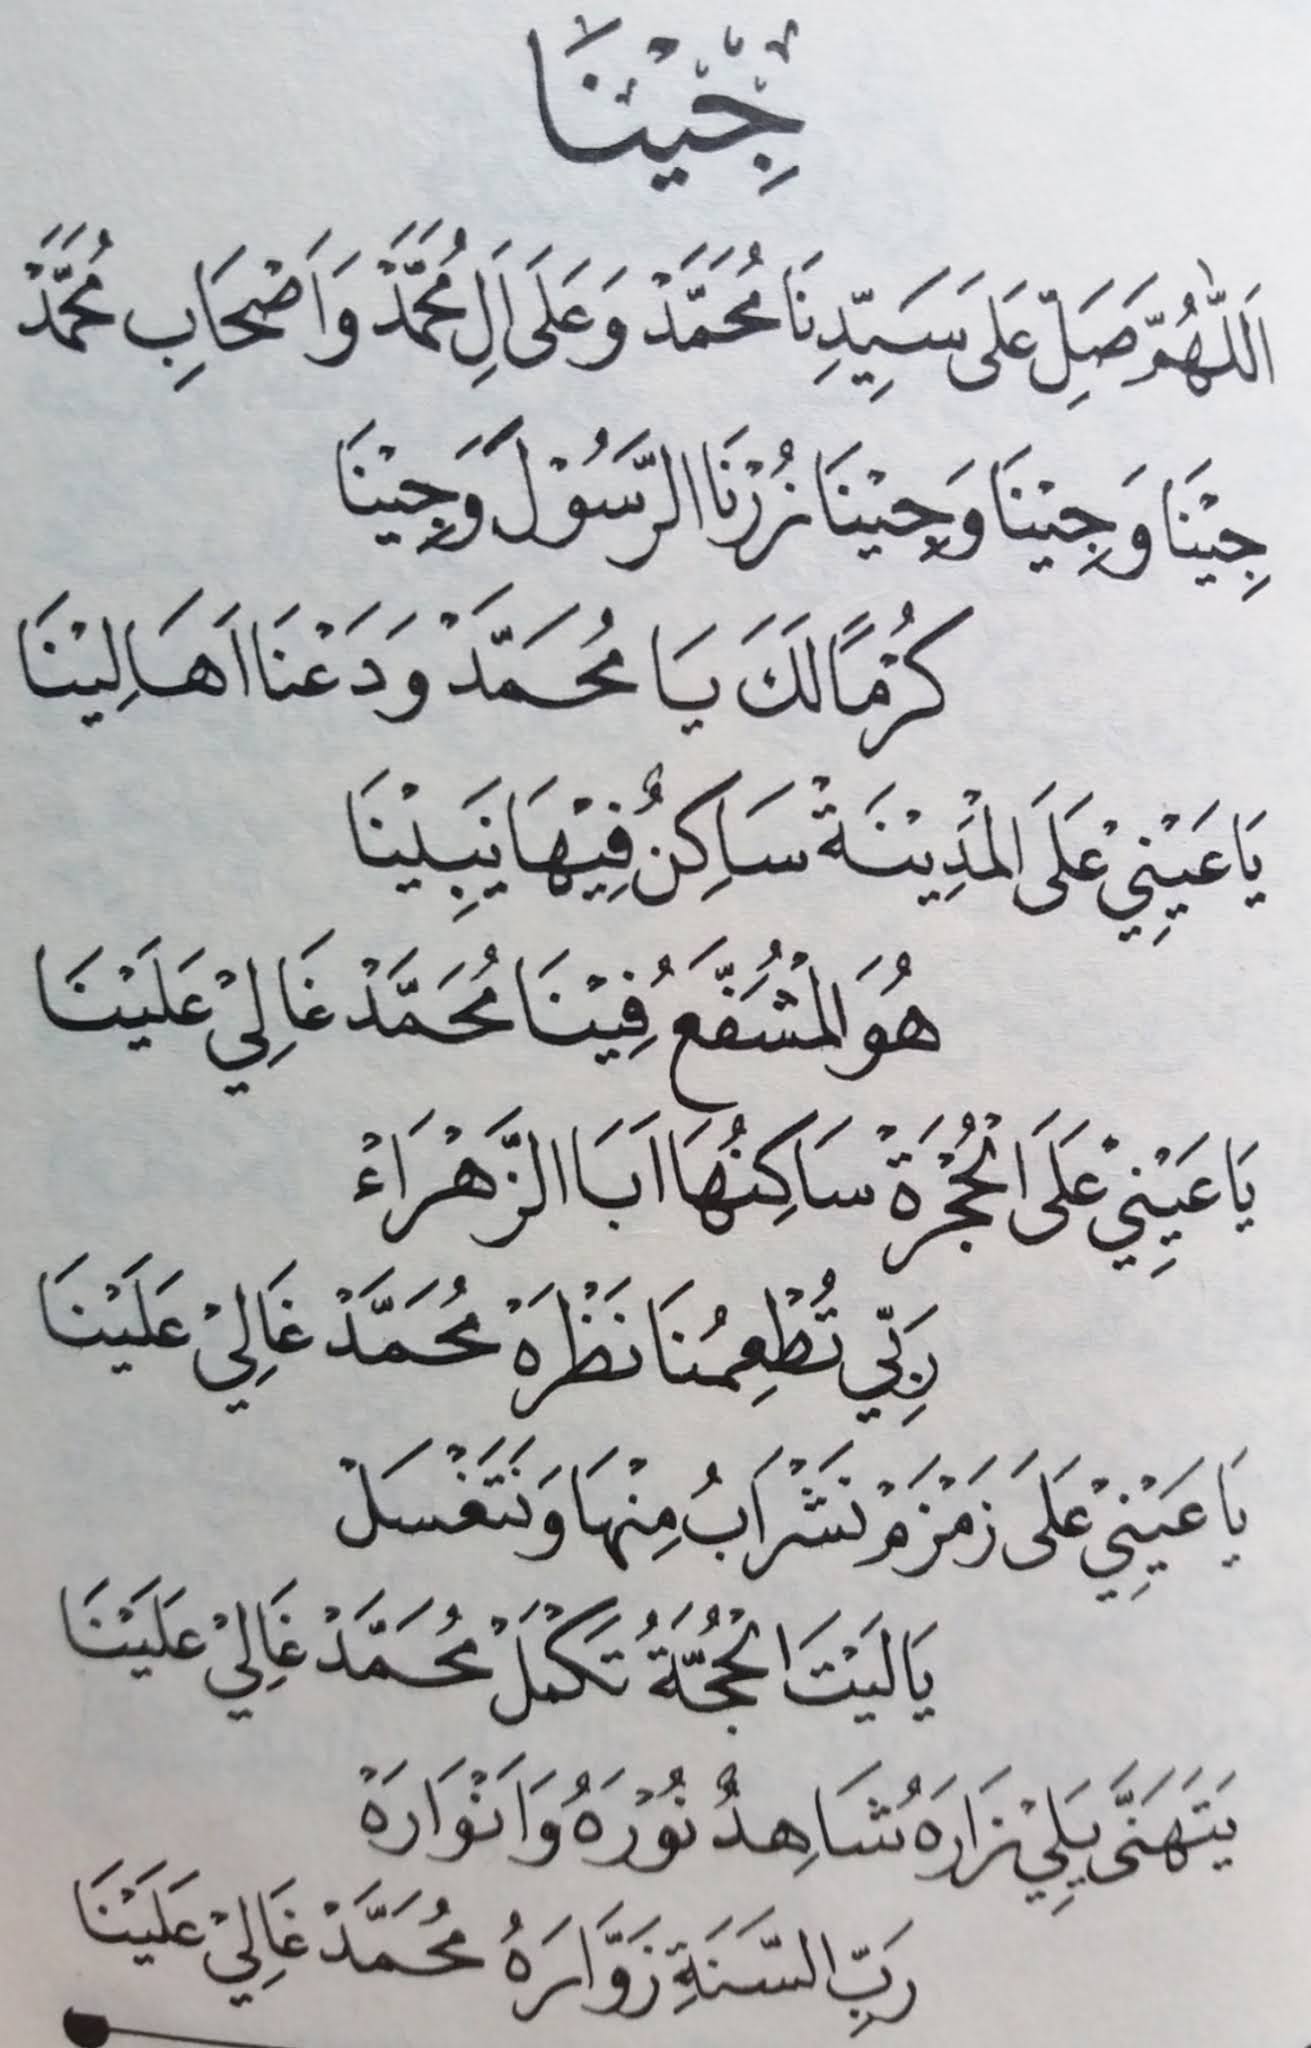 جِيْنَا
اَللّٰهُمَّ صَلِّ عَلَى سَيِّدِنَا مُحَمَّدْ وَعَلَى اَلِ مُحَمَّدْ وَاَصْحَابِ مُحَمَّدْ
جِيْنَا وَجِيْنَا وَجِيْنَا زُرْنَا الرَّسُوْلَ وَجِيْنَا
كُرْمًا لَكَ يَا مُحَمَّدْ وَدَعْنَا اَهَالِيْنَا
يَا عَيْنِيْ عَلَى الْمَدِيْنَةْ سَاكِنٌ فِيْهَا نَبِيْنَا
هُوَ الْمُشَفَّعُ فِيْنَا مُحَمَّدْ غَالِيْ عَلَيْنَا
يَا عَيْنِيْ عَلَى الْحُجْرَةْ سَاكِنُهَا اَبَا الزَّهْرَاءْ
رَبِّي تُطْعِمُنَا نَظْرَهْ مُحَمَّدْ غَالِيْ عَلَيْنَا
يَا عَيْنِيْ عَلَى زَمْزَمْ نَشْرَابُ مِنْهَا وَنَتَغْسَلْ
يَا لَيْتَ الْحُجَّةُ تَكْمَلْ مُحَمَّدْ غَالِيْ عَلَيْنَا
يَتَهَنَّى يَلِيْ زَارَهُ شَاهِدٌ نُوْرَهُ وَاَنْوَارَهْ
رَبِّ السَّنَةِ زَوَّارَهُ مُحَمَّدْ غَالِيْ عَلَيْنَا